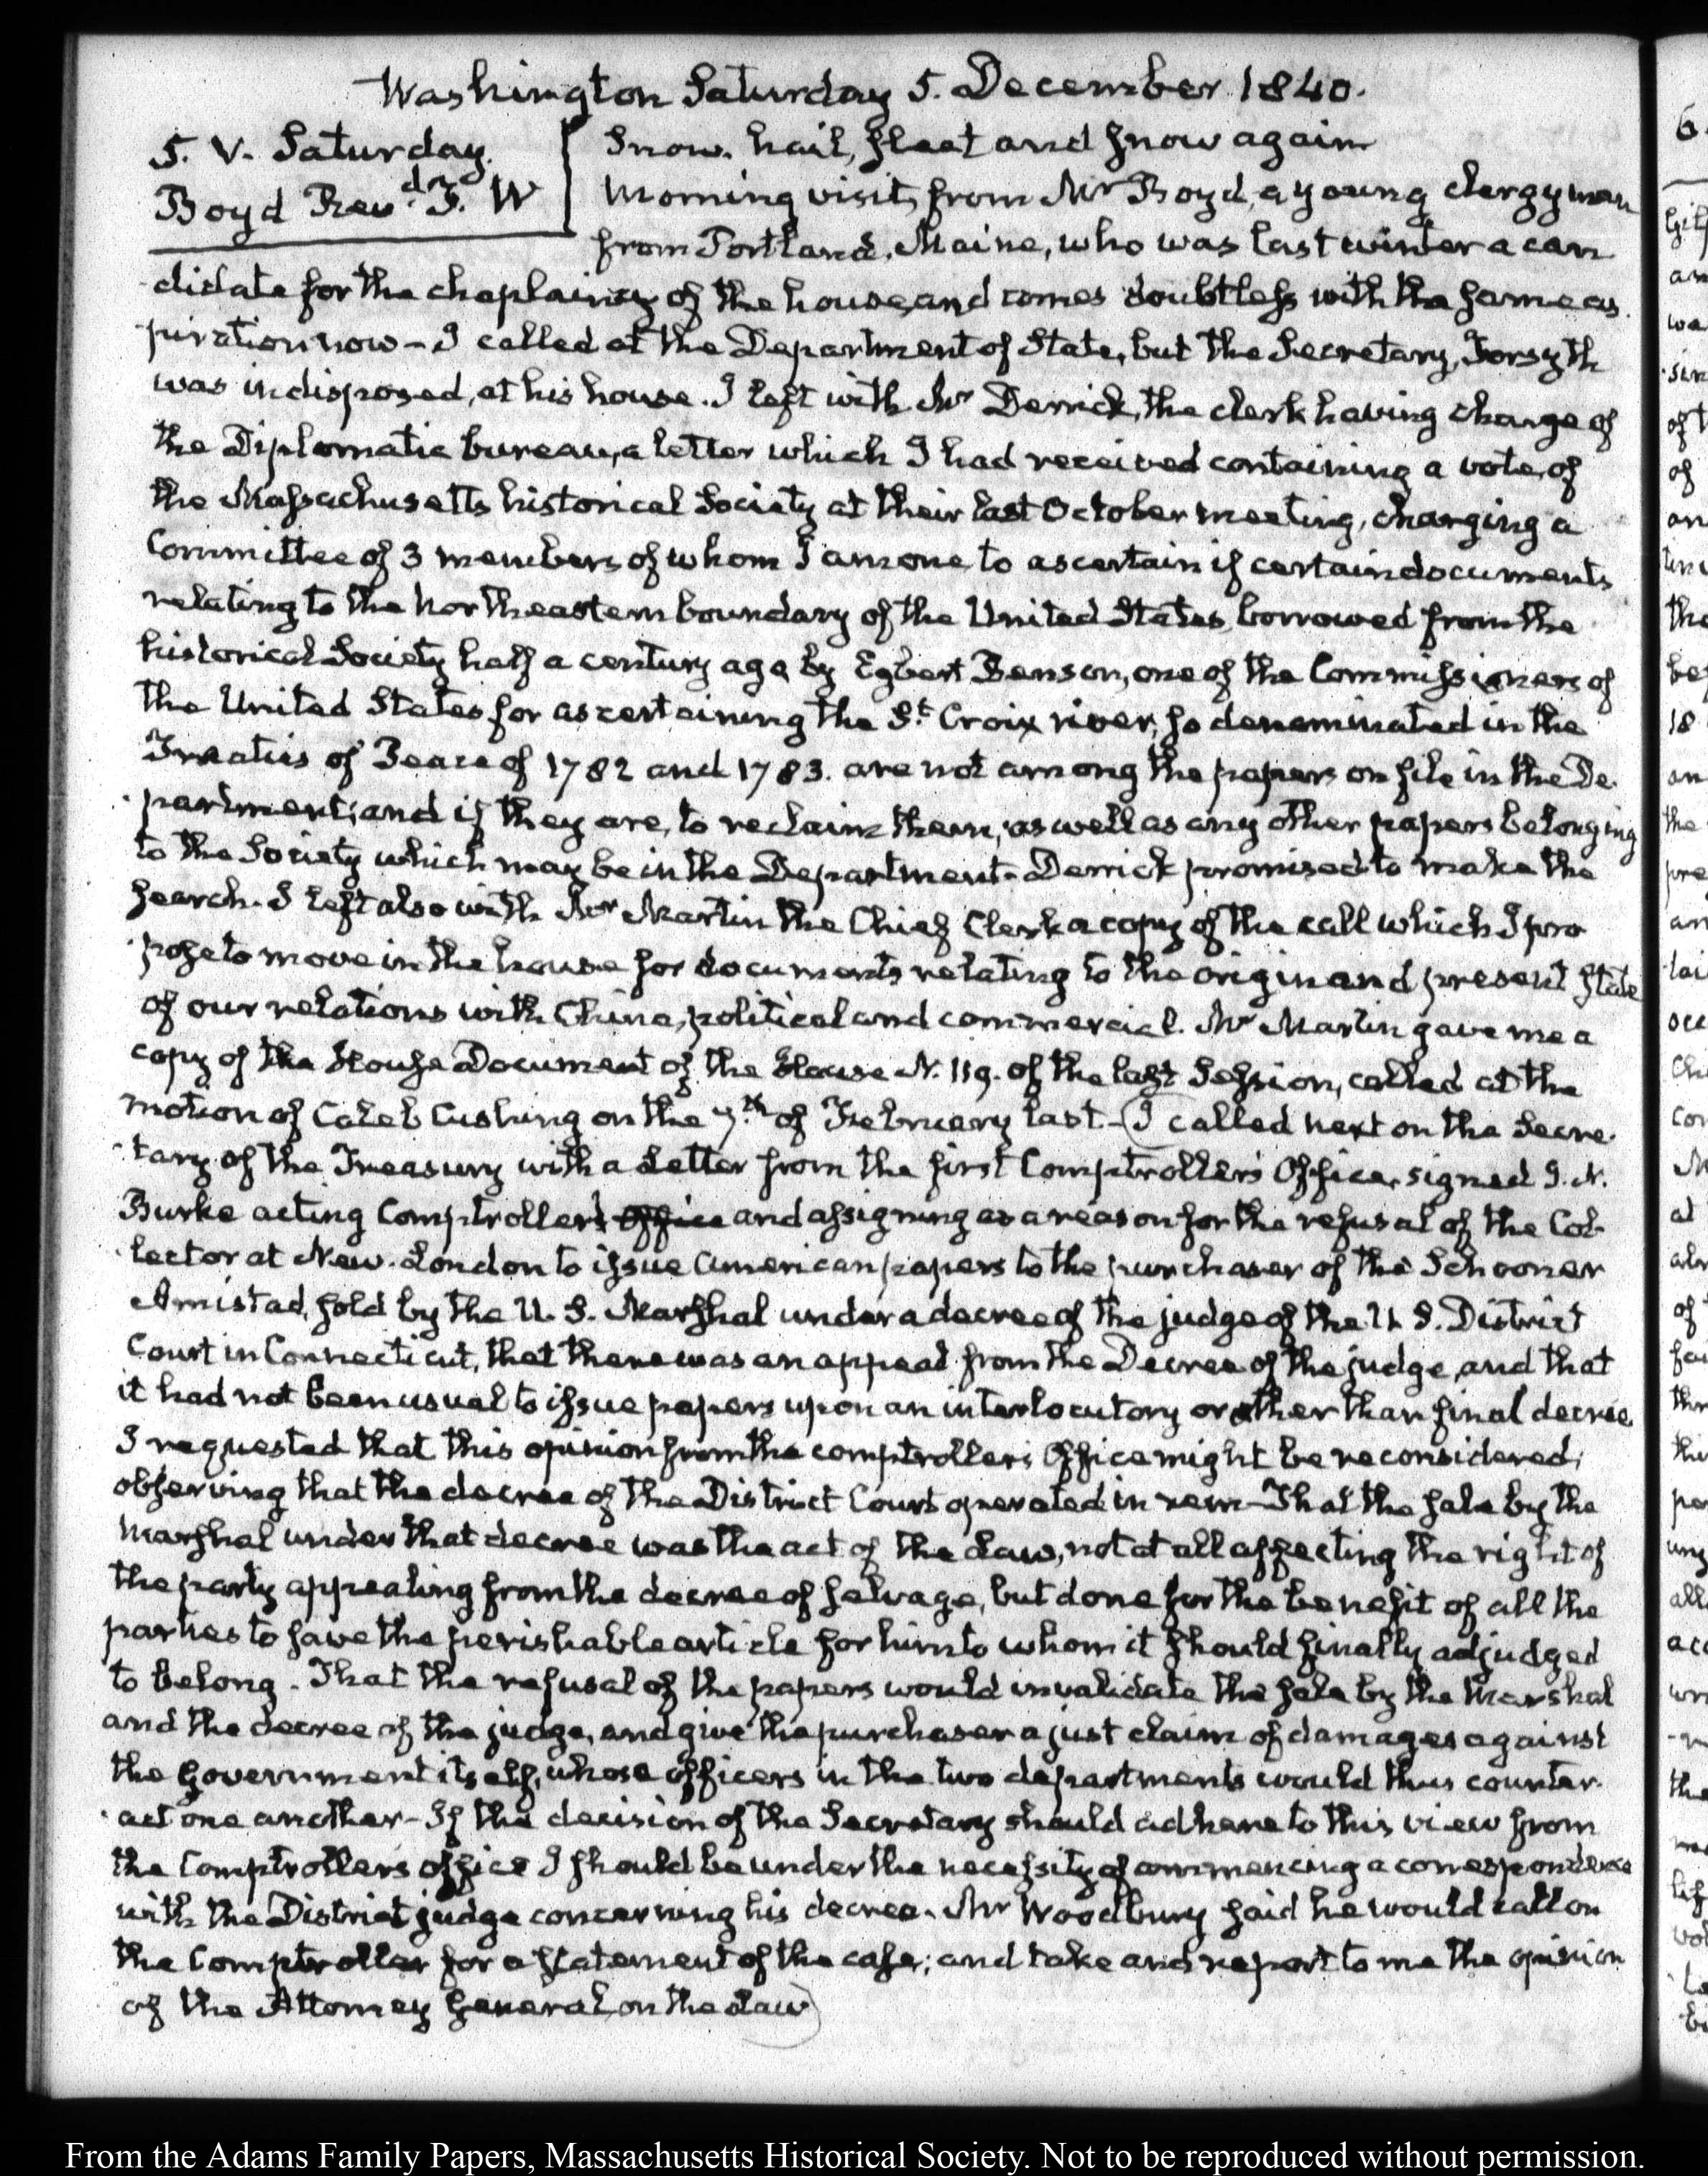 Washington Saturday 5. December 1840.
5. V. Saturday.
Boyd Revd. F. W
Snow, hail, sleet and snow again
Morning visit, from Mr Boyd, a young clergyman
from Portland, Maine, who was last winter a can
didate for the chaplaincy of the house, and comes doubtless with the same as
piration now - I called at the Department of State, but the Secretary, Forsyth
was indisposed, at his house. I left with Mr Derrick, the clerk having charge of
the Diplomatic bureau, a letter which I had received containing a vote, of
the Massachusetts historical Society at their last October meeting, charging a
Committee of 3 members of whom I am one to ascertain if certain documents
relating to the Northeastern boundary of the United States, borrowed from the
historical Society half a century ago by Egbert Benson, one of the Commissioners of
the United States for ascertaining the St. Croix river, so denominated in the
Treaties of Peace of 1782 and 1783. are not among the papers on file in the De
partment; and if they are, to reclaim them, as well as any other papers belonging
to the Society which may be in the Department - Derrick promised to make the
search. I left also with Mr Martin the Chief Clerk a copy of the call which I pro
pose to move in the house for documents relating to the origin and present state
of our relations with China, political and commercial. Mr Martin gave me a
copy of the House Document of the House N. 119. of the last Session, called at the
motion of Caleb Cushing on the 7th. of February last. - (I called next on the Secre
tary of the Treasury with a Letter from the first Comptroller's Office, signed I. N.
Burke acting Comptroller's Office and assigning as a reason for the refusal of the Col
lector at New-London to issue American papers to the purchaser of the Schooner
Amistad, sold by the U. S. Marshal under a decree of the judge of the U S. District
Court in Connecticut, that there was an appeal from the Decree of the judge, and that
it had not been usual to issue papers upon an interlocutory or other than final decree.
I requested that this opinion from the comptrollers Office might be reconsidered;
observing that the decree of the District Court operated in rem - That the sale by the
Marshal under that decree was the act of the Law, not at all affecting the right of
the party appealing from the decree of salvage, but done for the benefit of all the
parties to save the perishable article for him to whom it should finally adjudged
to belong. That the refusal of the papers would invalidate the sale by the Marshal
and the decree of the judge, and give the purchaser a just claim of damages against
the Government itself, whose officers in the two departments would thus counter
act one another - If the decision of the Secretary should adhere to this view from
the Comptrollers office I should be under the necessity of commencing a correspondence
with the District judge concerning his decree. Mr Woodbury said he would call on
the Comptroller for a statement of the case; and take and report to me the opinion
of the Attorney General, on the Law)
From the Adams Family Papers, Massachusetts Historical Society. Not to be reproduced without permission.